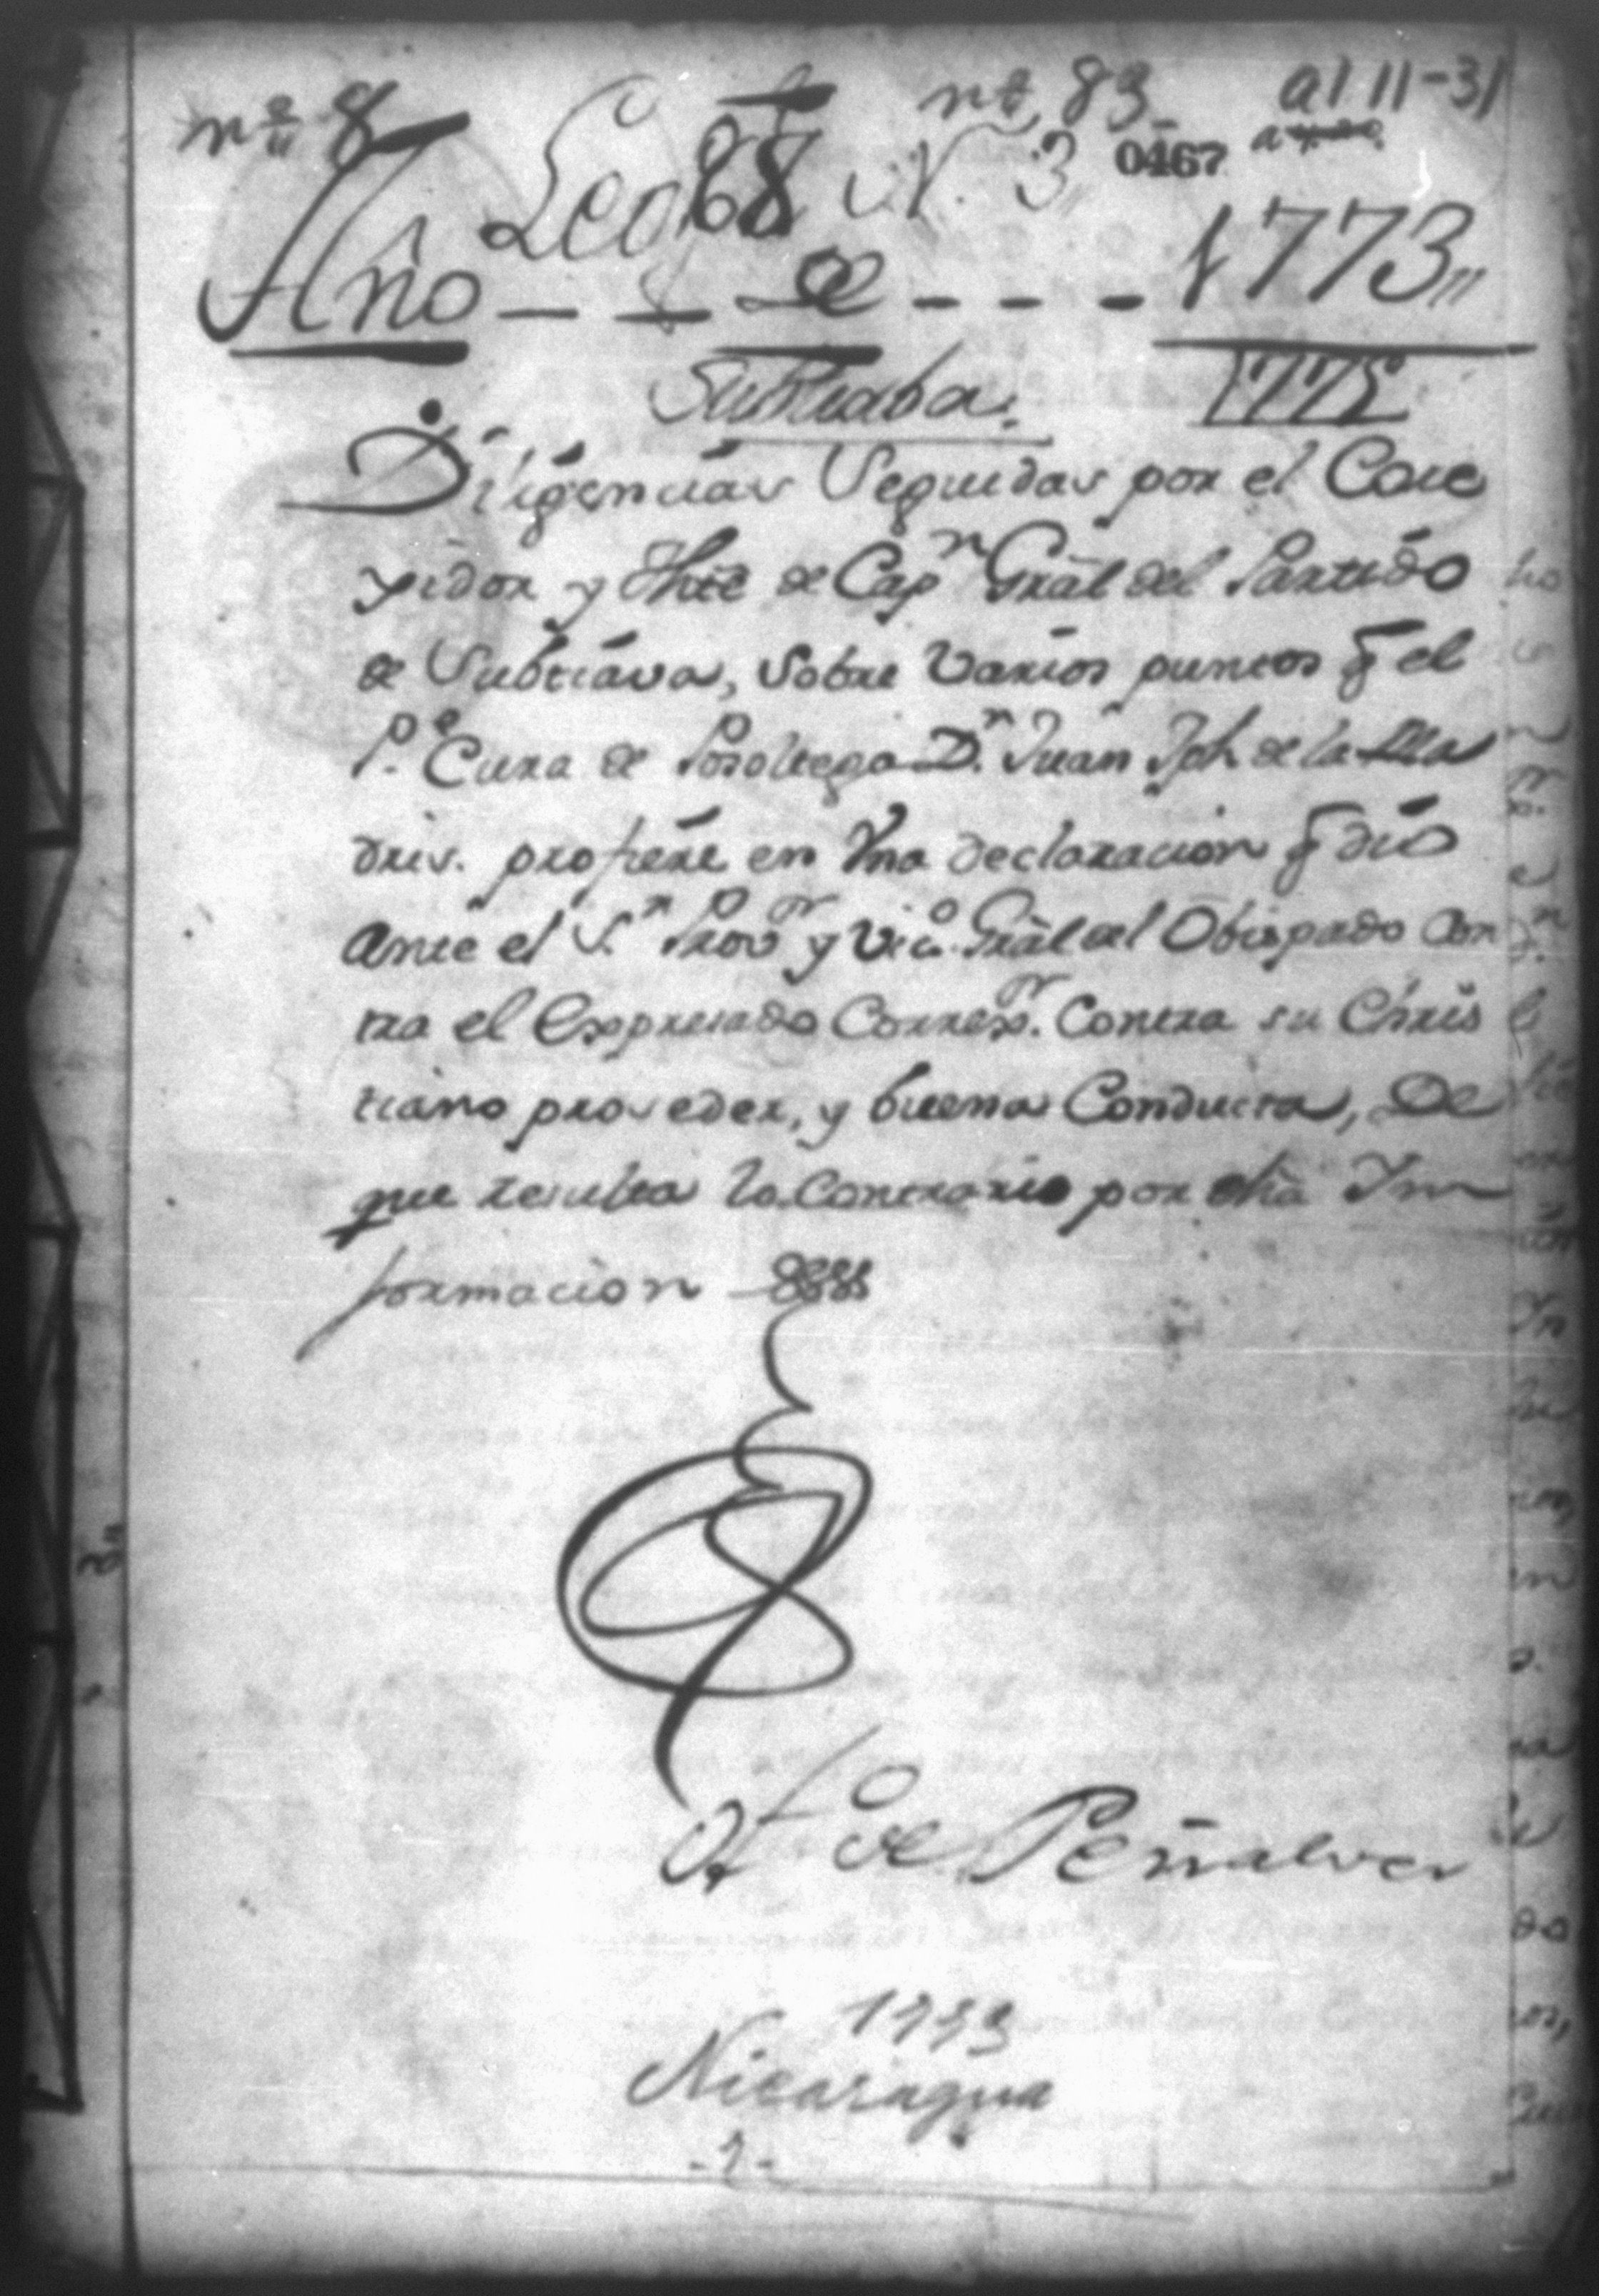 nº 8 nº 83 a1 11-31
Leg 68 N. 3 0467
Año de 1773
Subtiaba. 1775
Diligencias Seguidas por el Corre
gidor y Thte de Capn Gral del Partido
de Subtiava, sobre varios puntos q̃ el
Pe. Cura de Posoltega Dn. Juan Jph de la Ma
dris. profiere en Vna declaracion q̃ dio
Ante el Sn. Provor y Vico. Gral del Obispado Con
tra el Expresado Correxor. Contra su Chris
tiano proseder, y buena Conducta, De
que resulta lo Contrario por dha Yn
formacion
de Peñalver
1773
Nicaragua
-1-